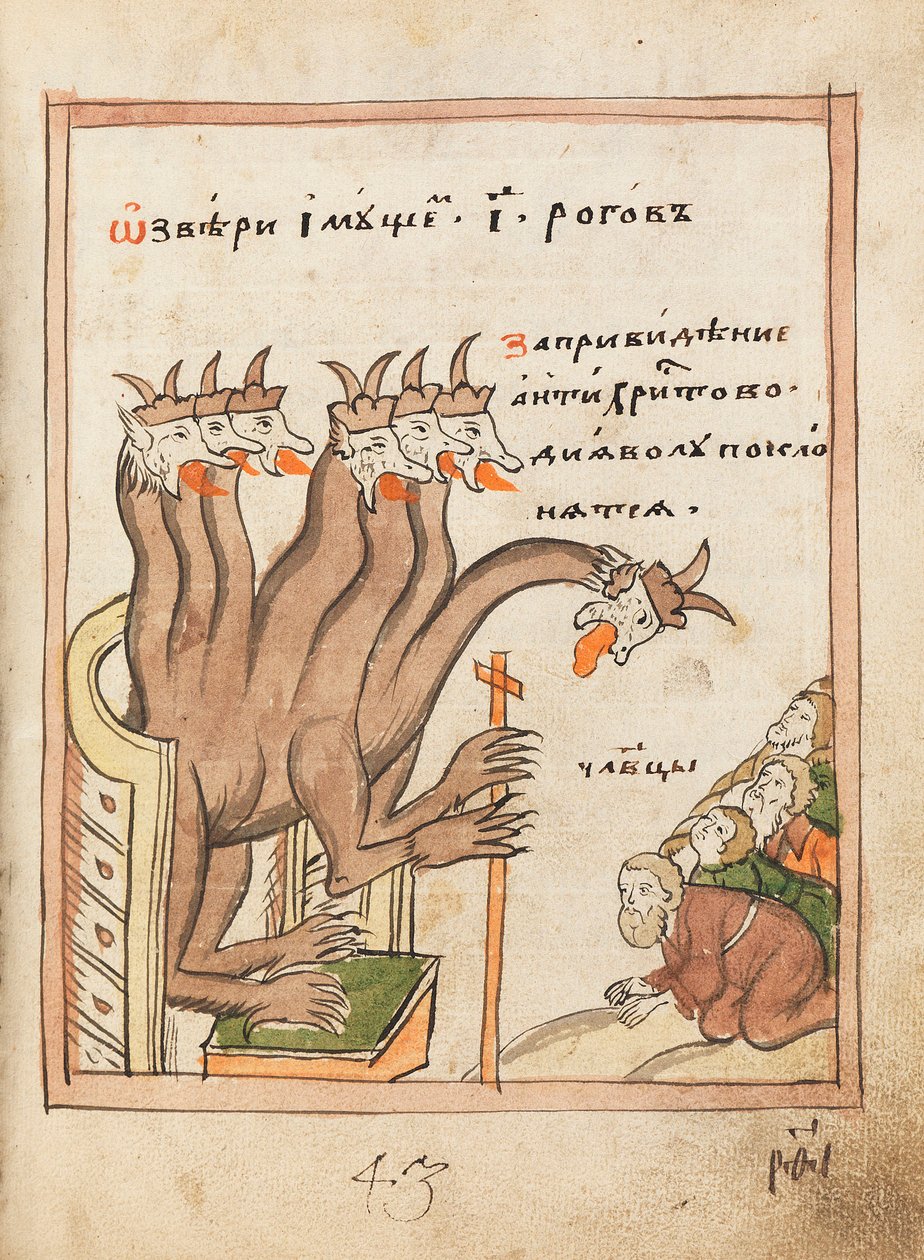 Ѡ҆звѣ́ри І҆мꙋ́щеⷨ . І҃ . рого́въ
Запривидѣ́ние
а҆нти́ хри҇тово .
дїѧ́волꙋ покло́
нѧтсѧ .
чл҃вцы
43